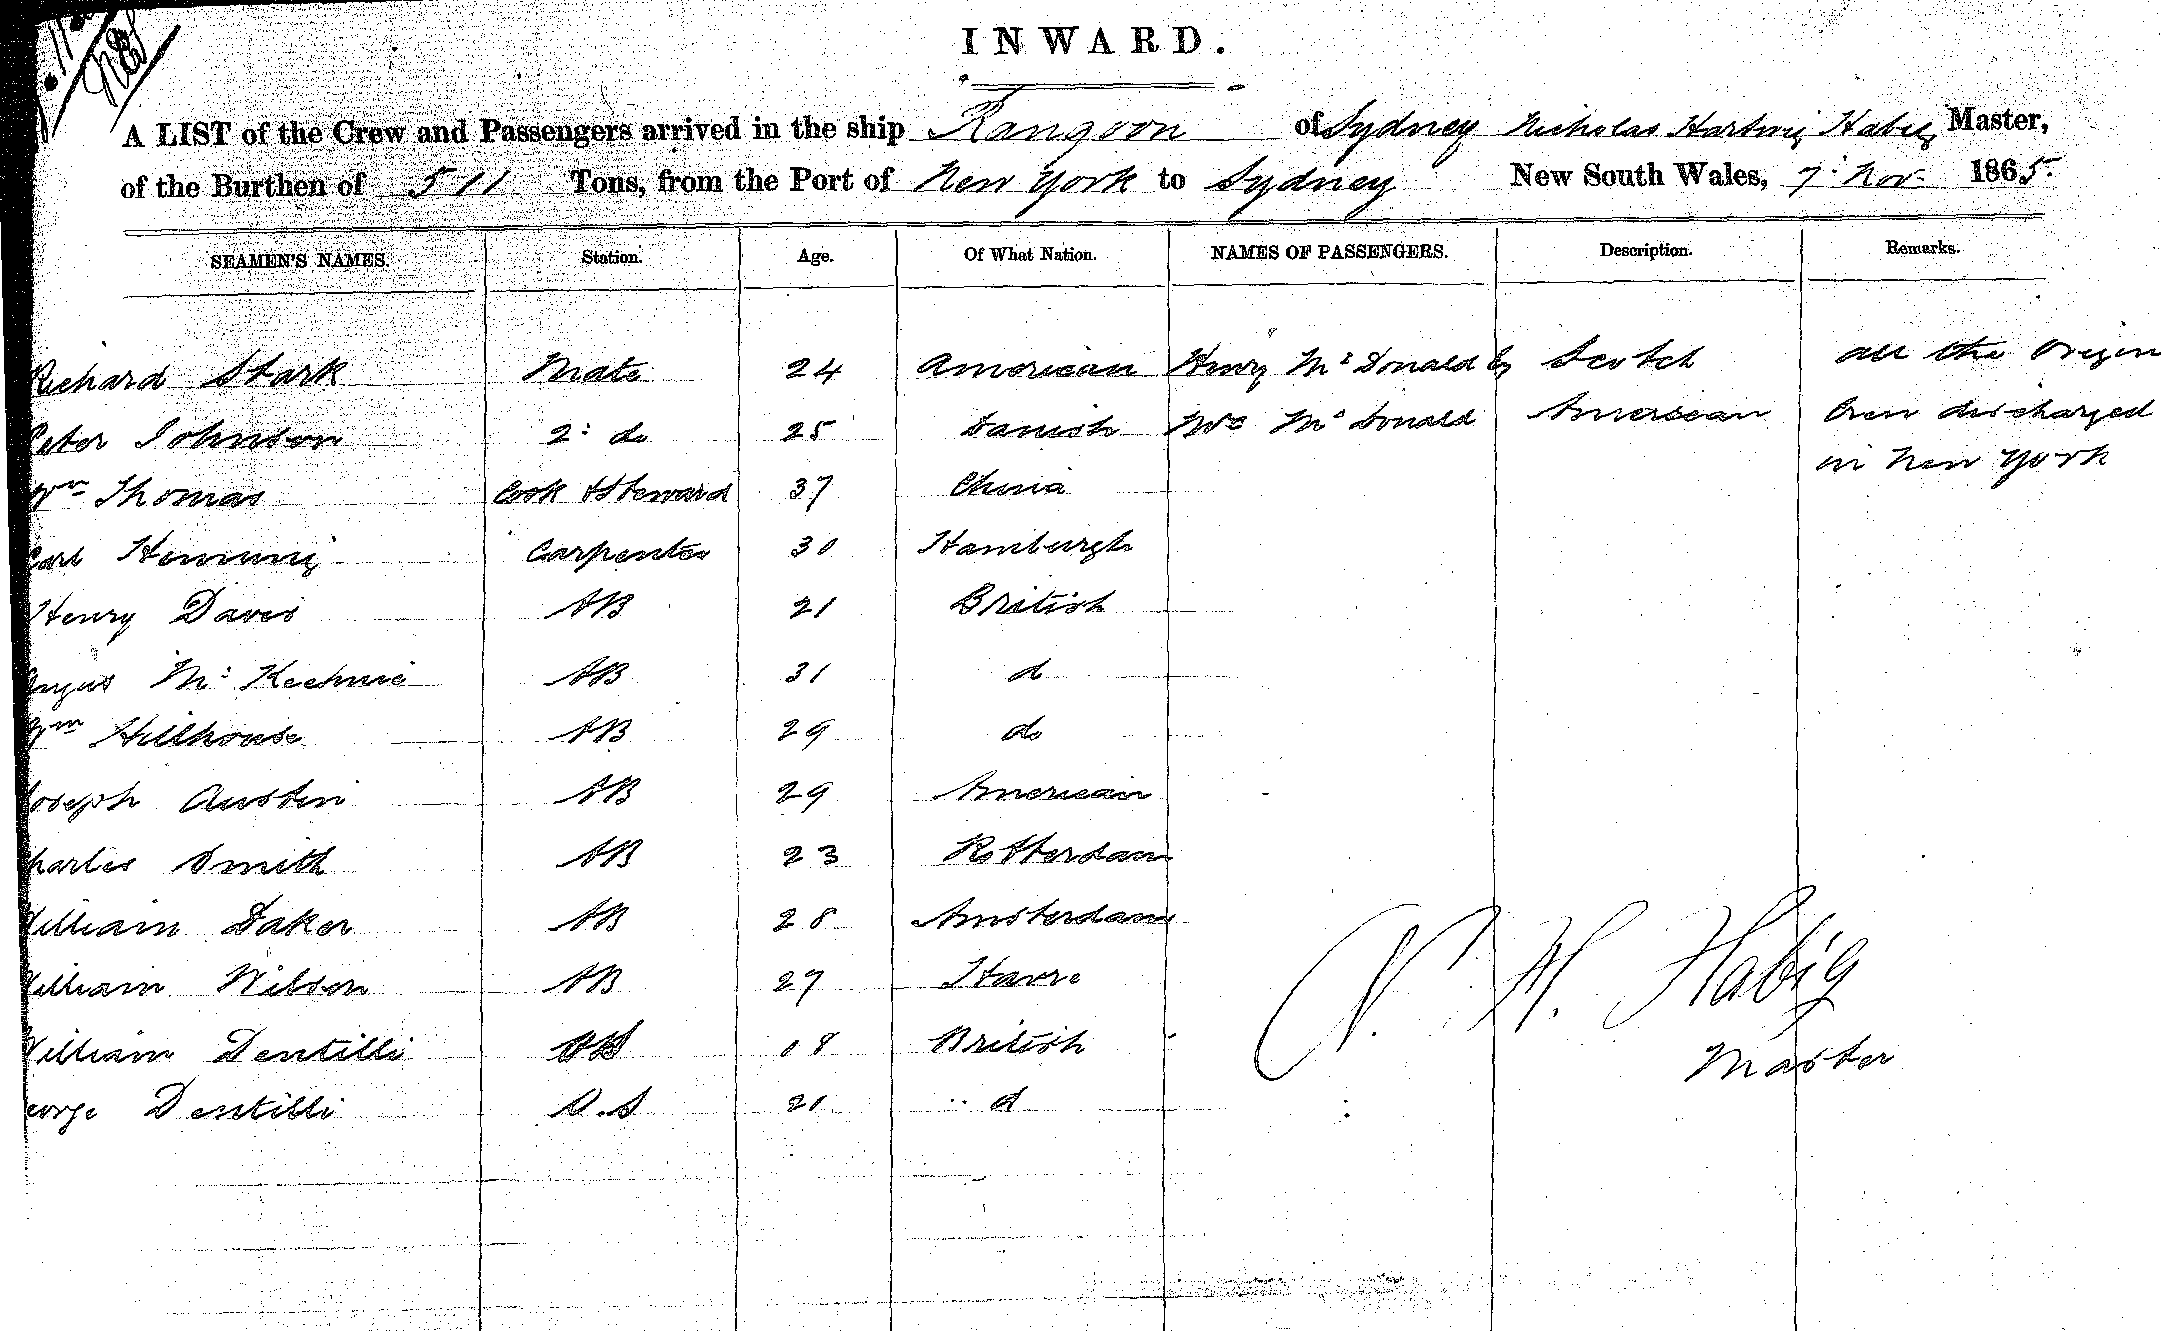 INWARD.
A LIST of the Crew and Passengers arrived in the ship Rangoon of Sydney Nicholas Hartwig Habig Master,
of the Burthen of 511 Tons, from the Port of New York to Sydney New South Wales, 7: Nov: 1865.
SEAMEN'S NAMES. Station. Age. Of What Nation. NAMES OF PASSENGERS. Description. Remarks.
Richard Stark Mate 24 American Henry Mc Donald Scotch all the Origin
Peter Johnson 2: do 25 Danish Mrs Mc Donald American Crew discharged
in New York
Wm Thomas Cook & Steward 37 China
Carl Henning Carpenter 30 Hamburgh
Henry Davis AB 21 British
Angus Mc Kechnie AB 31 d
Wm Hillhouse AB 29 do
Joseph Austin AB 29 American
Charles Smith AB 23 Rotterdam
William Daker AB 28 Amsterdam
William Wilson AB 27 Havre
William Dentilli OS 18 British
George Dentilli O.S 21 d
N. H. Habig
Master